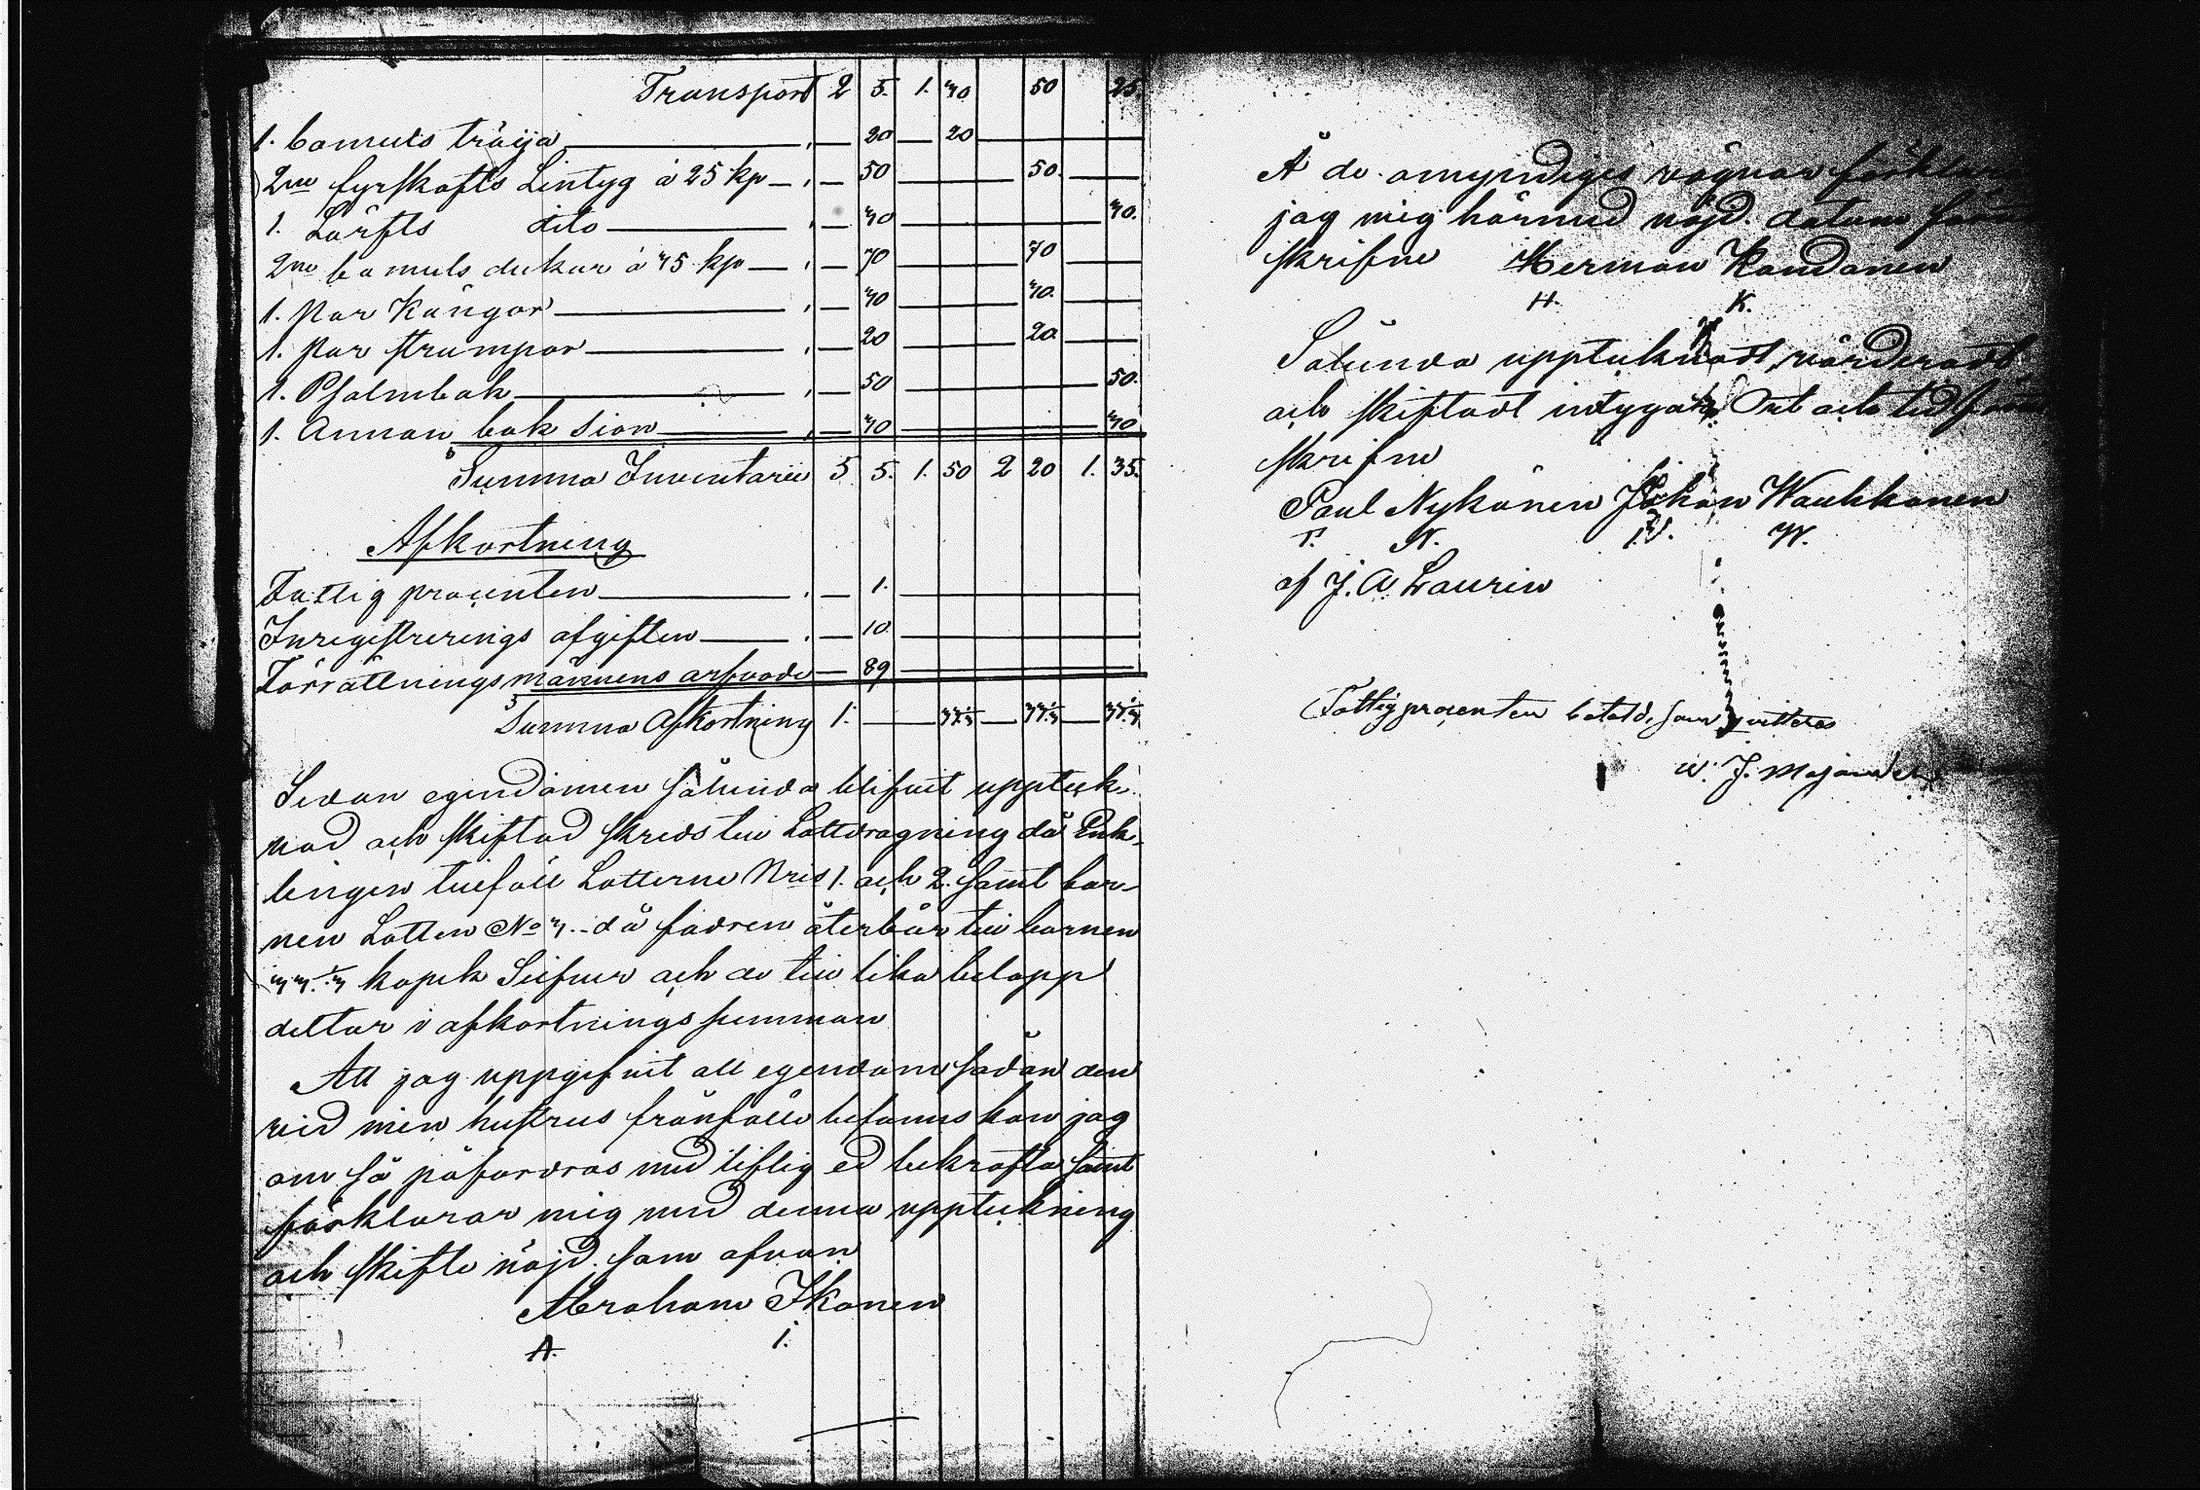 Transport 2 5. 1. 30 50 25.
1. bomuls tröija — 20 — 20
2ne fyrskafts Lintyg à 25 kp — 50 50.
1. Lärfts dito — 30 30.
2ne bomuls dukar à 35 kp — 70 70
1. Par Kängor — 30 30.
1. Par strumpor — 20 20
1. Psalmbok — 50 50.
1. Annan bok Sion — 30 30
Summa Inventarii 5 5. 1. 50 2 20 1. 35.
Afkortning
Fattig procenten — 1.
Inregistrerings afgiften — 10
Förrättningsmännens arfvode — 89
Summa Afkortning 1. — 33⅓ — 33⅓ — 33⅓
Sedan egendomen sålunda blifvit uppteck-
nad och skiftad skreds till Lottdragning då Enk-
lingen tillföll Lotterne Nris 1. och 2. samt bar-
nen Lotten No 3. då fadren återbär till barnen
33.⅓ kopek Silfver och de till lika belopp
deltar i afkortnings summan
Att jag uppgifvit all egendom sådan den
vid min hustrus frånfälle befanns kan jag
om så påfordras med liflig ed bekräfta samt
förklarar mig med denna uppteckning
och skifte nöjd. som ofvan
Abraham Ikonen
A. I.
Å de omyndiges vägnar
jag mig härmed nöjd. datum
skrifne Herman Kandanen
H. K.
Sålunda upptecknadt, värderadt
och skiftadt intygar Ort och tid
skrifne
Paul Nykänen Johan Waukkonen
P. N. J. W.
af J. A Laurin
Fattigprocenten betald, som qvitteras
W. J.